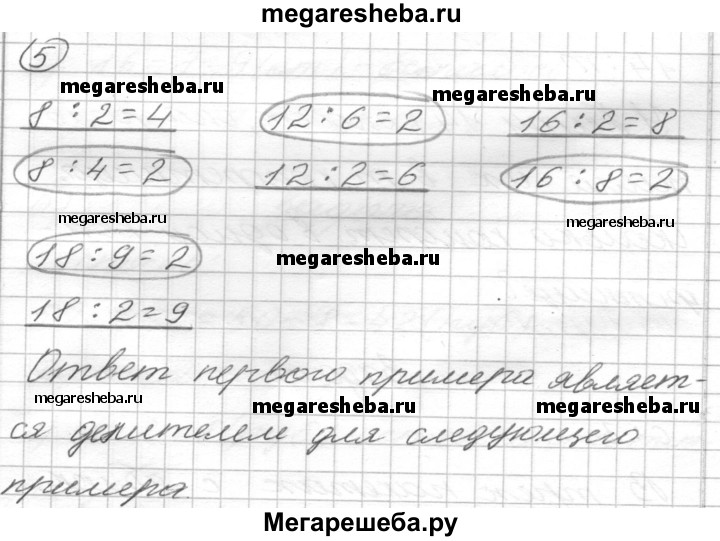 megaresheba.ru
5
megaresheba.ru
megaresheba.ru
8 : 2 = 4 12 : 6 = 2 16 : 2 = 8
8 : 4 = 2 12 : 2 = 6 16 : 8 = 2
megaresheba.ru
megaresheba.ru
18 : 9 = 2
megaresheba.ru
18 : 2 = 9
Ответ первого примера являет-
megaresheba.ru
megaresheba.ru
megaresheba.ru
ся делителем для следующего
примера.
Мегарешеба.ру